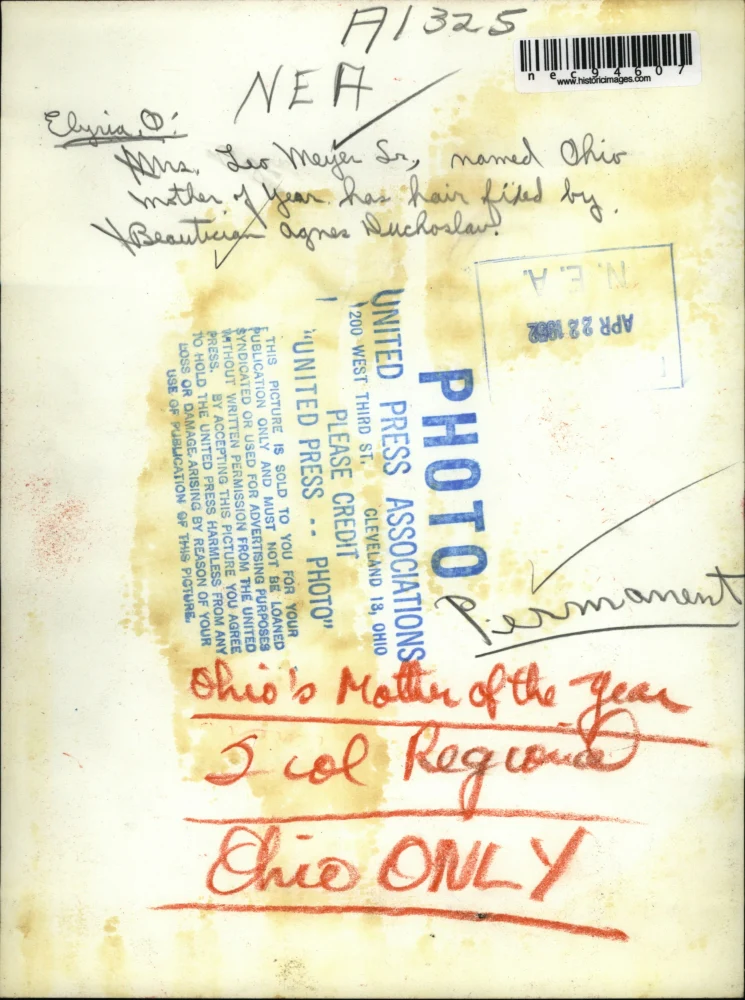 A1325
nec94607
www.historicimages.com
NEA
Elyria, O:
Mrs. Leo Meyer Sr., named Ohio
mother of Year has hair fixed by
Beautician Agnes Duchoslav.
N.E.A.
APR 22 1952
PHOTO
UNITED PRESS ASSOCIATIONS
1200 WEST THIRD ST. CLEVELAND 13, OHIO
PLEASE CREDIT
"UNITED PRESS -- PHOTO"
THIS PICTURE IS SOLD TO YOU FOR YOUR
PUBLICATION ONLY AND MUST NOT BE LOANED
SYNDICATED OR USED FOR ADVERTISING PURPOSES
WITHOUT WRITTEN PERMISSION FROM THE UNITED
PRESS. BY ACCEPTING THIS PICTURE YOU AGREE
TO HOLD THE UNITED PRESS HARMLESS FROM ANY
LOSS OR DAMAGE ARISING BY REASON OF YOUR
USE OF PUBLICATION OF THIS PICTURE.
Permanent
Ohio's Mother of the Year
col Regional
Ohio ONLY